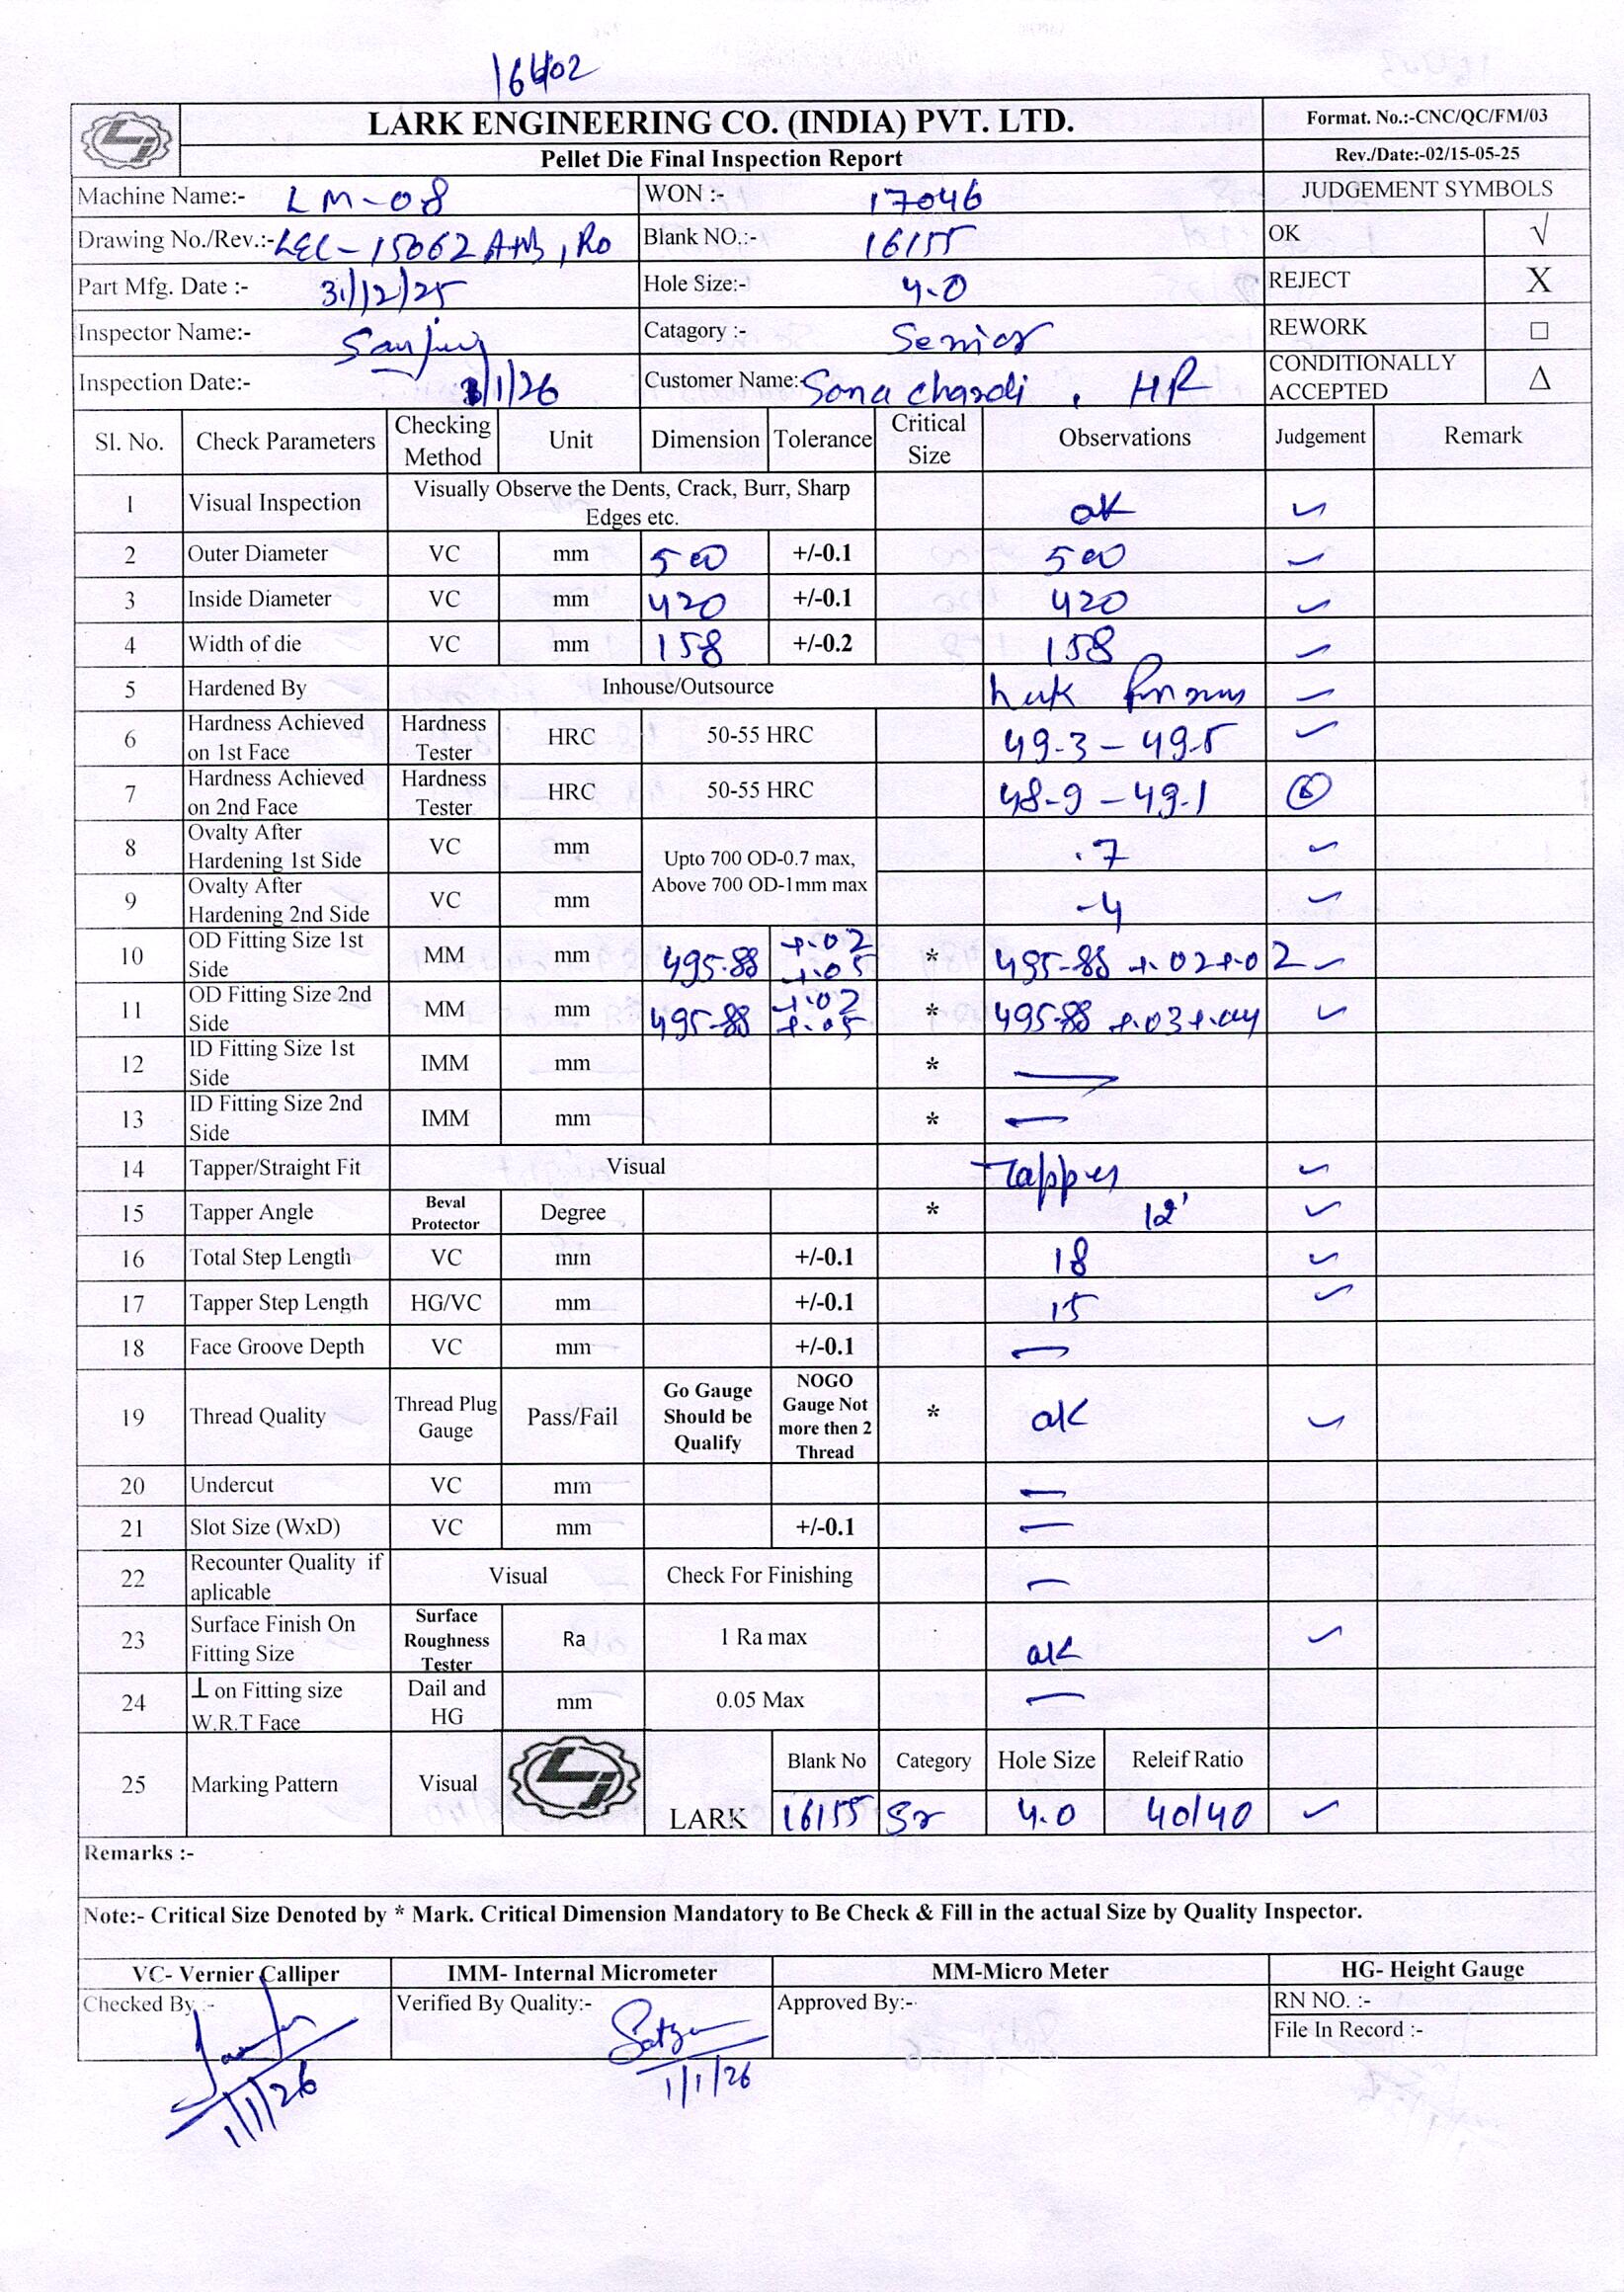 16402
LARK ENGINEERING CO. (INDIA) PVT. LTD. Format. No.:-CNC/QC/FM/03
Pellet Die Final Inspection Report Rev./Date:-02/15-05-25
Machine Name:- LM-08 WON :- 17046 JUDGEMENT SYMBOLS
Drawing No./Rev.:- LEC-15062 A+B, R0 Blank NO.:- 16155 OK √
Part Mfg. Date :- 31/12/25 Hole Size:- 4.0 REJECT X
Inspector Name:- Catagory :- Senior REWORK □
Inspection Date:- 1/1/26 Customer Name:- Sona Chandi , HR CONDITIONALLY ACCEPTED Δ
Sl. No. Check Parameters Checking Method Unit Dimension Tolerance Critical Size Observations Judgement Remark
1 Visual Inspection Visually Observe the Dents, Crack, Burr, Sharp Edges etc. ok ✓
2 Outer Diameter VC mm 500 +/-0.1 500 ✓
3 Inside Diameter VC mm 420 +/-0.1 420 ✓
4 Width of die VC mm 158 +/-0.2 158 ✓
5 Hardened By Inhouse/Outsource ✓
6 Hardness Achieved on 1st Face Hardness Tester HRC 50-55 HRC 49.3 - 49.5 ✓
7 Hardness Achieved on 2nd Face Hardness Tester HRC 50-55 HRC 48.9 - 49.1
8 Ovalty After Hardening 1st Side VC mm Upto 700 OD-0.7 max, Above 700 OD-1mm max .7 ✓
9 Ovalty After Hardening 2nd Side VC mm .4 ✓
10 OD Fitting Size 1st Side MM mm 495.88 +.02 +.05 * 495.88 +.02 +.02 ✓
11 OD Fitting Size 2nd Side MM mm 495.88 +.02 +.05 * 495.88 +.03 +.04 ✓
12 ID Fitting Size 1st Side IMM mm * —
13 ID Fitting Size 2nd Side IMM mm * —
14 Tapper/Straight Fit Visual Tapper ✓
15 Tapper Angle Beval Protector Degree * 12' ✓
16 Total Step Length VC mm +/-0.1 18 ✓
17 Tapper Step Length HG/VC mm +/-0.1 15 ✓
18 Face Groove Depth VC mm +/-0.1 —
19 Thread Quality Thread Plug Gauge Pass/Fail Go Gauge Should be Qualify NOGO Gauge Not more then 2 Thread * ok ✓
20 Undercut VC mm —
21 Slot Size (WxD) VC mm +/-0.1 —
22 Recounter Quality if aplicable Visual Check For Finishing —
23 Surface Finish On Fitting Size Surface Roughness Tester Ra 1 Ra max ok ✓
24 ⊥ on Fitting size W.R.T Face Dail and HG mm 0.05 Max —
25 Marking Pattern Visual LARK Blank No Category Hole Size Releif Ratio
16155 Sr 4.0 40/40 ✓
Remarks :-
Note:- Critical Size Denoted by * Mark. Critical Dimension Mandatory to Be Check & Fill in the actual Size by Quality Inspector.
VC- Vernier Calliper IMM- Internal Micrometer MM-Micro Meter HG- Height Gauge
Checked By :- Verified By Quality:- Approved By:- RN NO. :-
File In Record :-
1/1/26 1/1/26